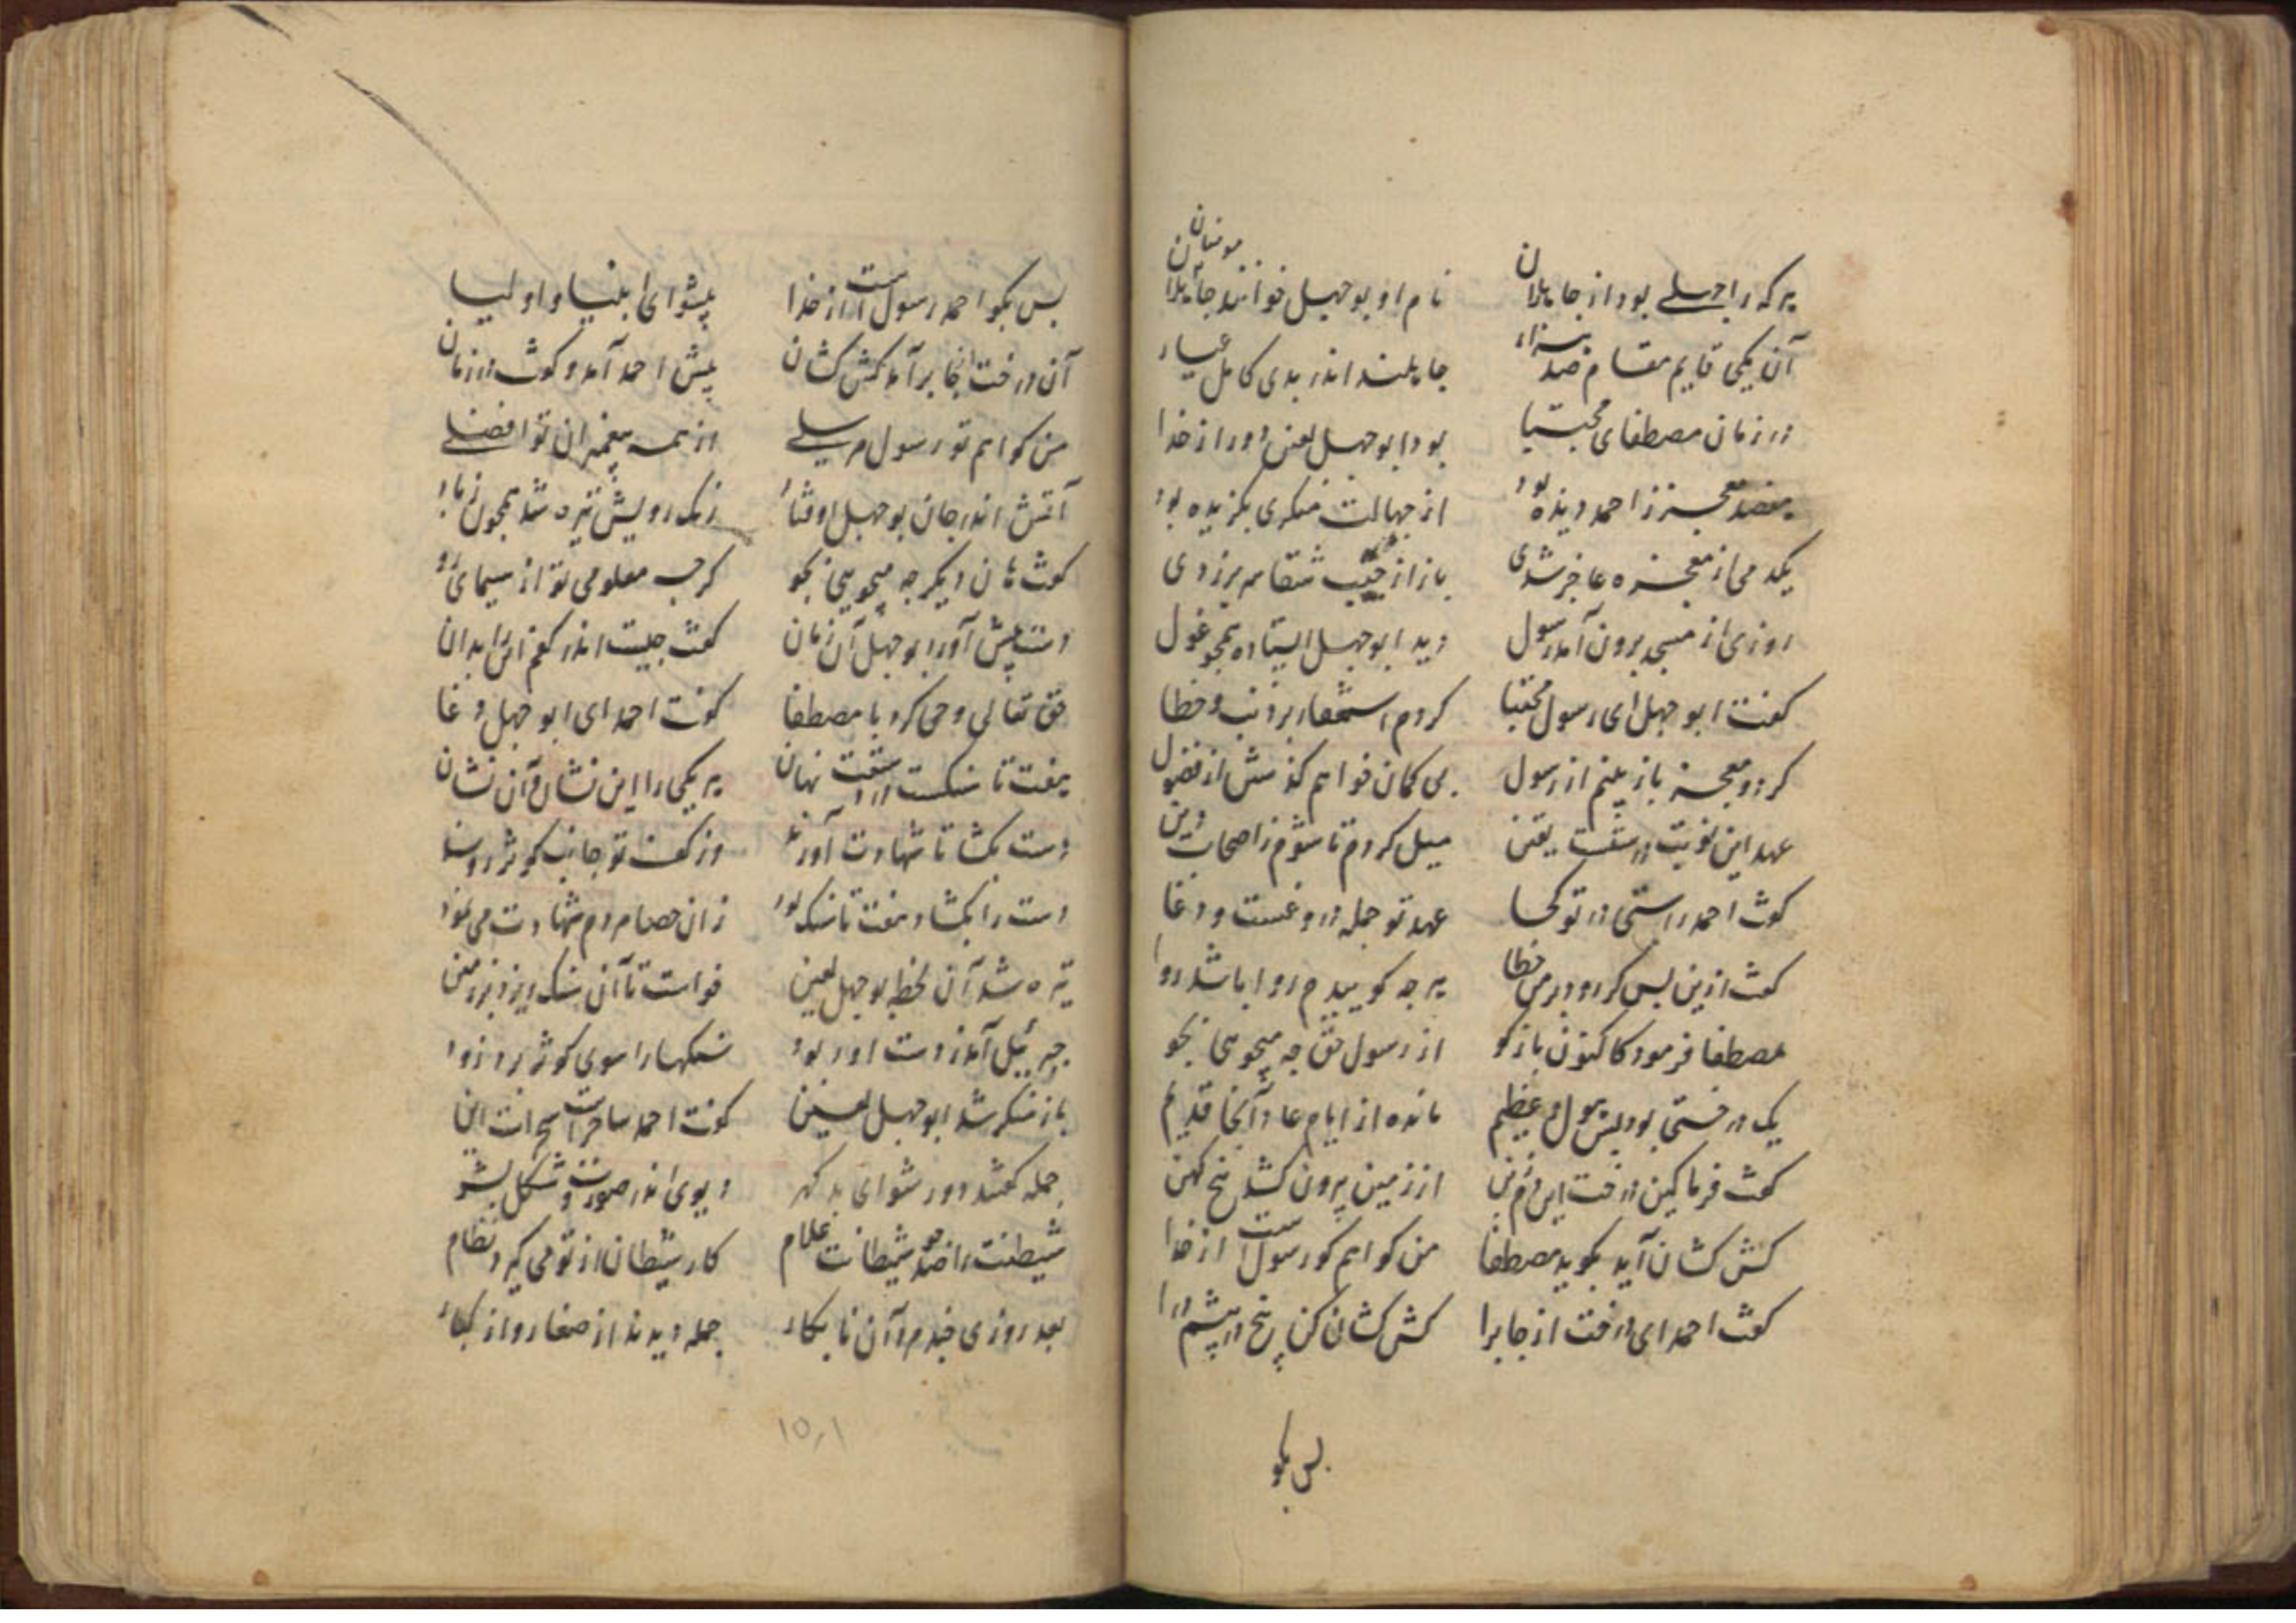 هر که را جهلی بود از جاهلان نام او بوجهل خوانند جاهلان
مومنان
آن یکی قایم مقام صد هزار جاهلند اندر بدی کامل عیار
در زمان مصطفای مجتبا بود ابوجهل لعین دور از خدا
معجز از احمد دیده بود از جهالت منکری بگزیده بود
یکدمی از معجزه عاجز شدی باز از شقا سر برزدی
روزی از مسجد برون آمد رسول دید ابوجهل ایستاده همچو غول
کفت ابوجهل ای رسول مجتبا کردم استغفار بر ذنب و خطا
کر دو معجز باز بینم از رسول بی کمان خواهم کذشتن از فضول
عهد این نوبت درستست یقین میل کردم تا شوم ز اصحاب دین
کفت احمد راستی در تو کجا عهد تو جمله دروغست و دغا
کفت ازین پس کر رود بر من خطا هر چه کوییدم روا باشد روا
مصطفا فرمود کاکنون باز کو از رسول حق چه میجویی بجو
یک درختی بود بس هول و عظیم مانده از ایام عاد آنجا قدیم
کفت فرما کین درخت این دم ز بن از زمین بیرون کشد بیخ کهن
کش کشان آید بکوید مصطفا من کواهم کو رسول است از خدا
کفت احمد ای درخت از جا برا کش کشان کن بیخ در پیشم درا
پس بکو
پس بکو احمد رسول است از خدا پیشوای انبیا و اولیا
آن درخت آنجا برآمد کش کشان پیش احمد آمد و کفت در زمان
من کواهم تو رسول مرسلی از همه پیغمبران تو افضلی
آتش اندر جان بوجهل اوفتاد رنک رویش تیره شد همچون رماد
کفت هان دیکر چه میجویی بجو کرچه معلومی تو از سیمای رو
دست پیش آورد بوجهل آن زمان کفت چیست اندر کفم این را بدان
حق تعالی وحی کرد با مصطفا کفت احمد ای ابوجهل دغا
هفت تا سنکست در دستت نهان هر یکی را این نشان و آن نشان
دست بکشا تا شهادت آورند وز کفت تو جانب کوثر روند
دست را بکشاد هفت تا سنک بود زان حصا هر دم شهادت می نمود
تیره شد آن لحظه بوجهل لعین خواست تا آن سنک ریزد بر زمین
جبرئیل آمد ز دست او ربود سنکها را سوی کوثر برد زود
باز منکر شد ابوجهل لعین کفت احمد ساحر است سحر است این
جمله کفتند دور شو ای بد کهر دیوی اندر صورت و شکل بشر
شیطنت را صد چو شیطانت غلام کار شیطان از تو می کیرد نظام
بعد روزی چند مرد آن نابکار جمله دیدند از صغار و از کبار
۱۵۰۱